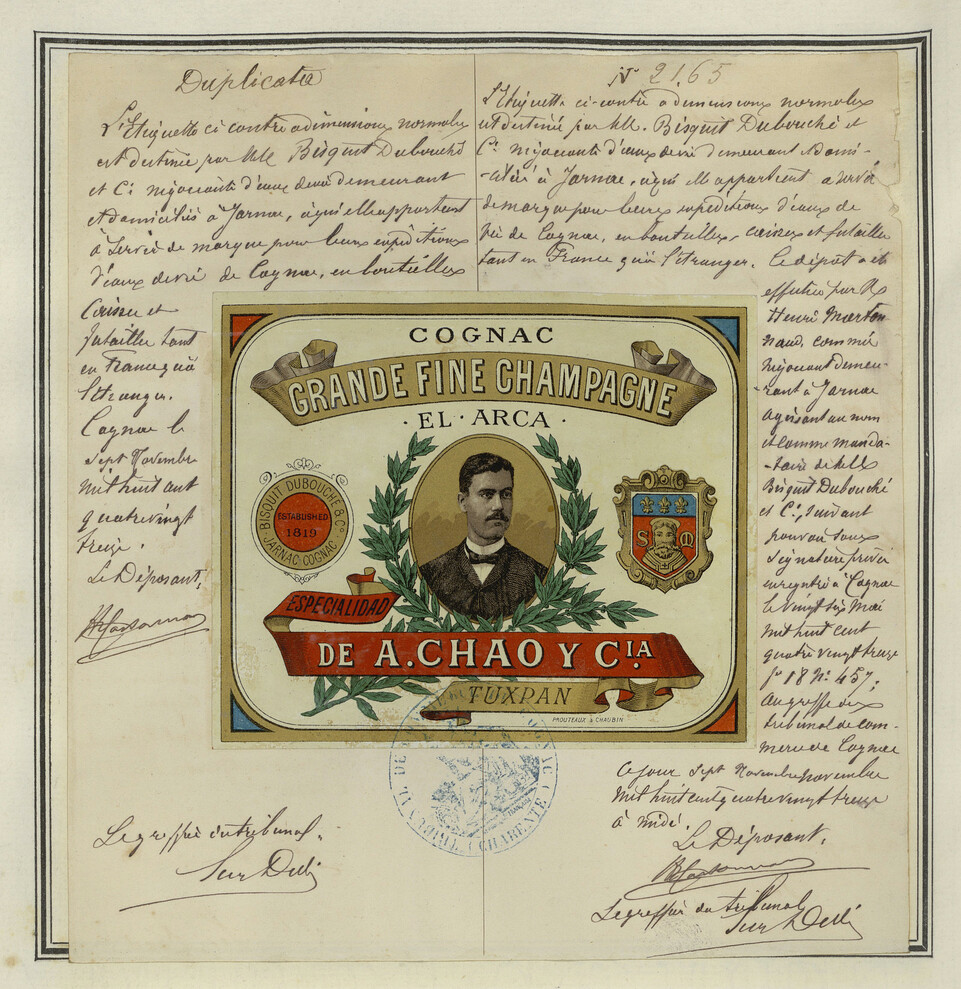 Duplicata
L'Etiquette ci contre a dimensions normales
est destinée par MM Bisquit Dubouché
et Cie négociants d'eaux de vie demeurant
et domiciliés à Jarnac, à qui elle appartient
à servir de marque pour leurs expéditions
d'eaux de vie de Cognac, en bouteilles
Caisses et
futailles tant
en France qu'à
l'étranger.
Cognac le
sept Novembre
mil huit cent
quatre vingt
treize.
Le Déposant,
Le greffier du tribunal.
N° 2165
L'Etiquette ci-contre a dimensions normales
est destinée par MM. Bisquit Dubouché et
Cie négociants d'eaux de vie demeurant et domi-
-ciliés à Jarnac, à qui elle appartient à servir
de marque pour leurs expéditions d'eaux de
vie de Cognac, en bouteilles, caisses et futailles
tant en France qu'à l'étranger. Le dépôt a été
effectué par Mr
Henri Marton
naud, commis
négociant demeu-
-rant à Jarnac
agissant au nom
et comme manda-
-taire de MM
Bisquit Dubouché
et Cie, suivant
pouvoir sous
signature privée
enregistré à Cognac
le vingt six Mai
mil huit cent
quatre vingt treize
fo 18 No 457;
au greffe du
tribunal de com-
merce de Cognac
ce jour sept Novembre novembre
mil huit cent quatre vingt treize
à midi.
Le Déposant,
Le greffier du tribunal
COGNAC
GRANDE FINE CHAMPAGNE
EL · ARCA
BISQUIT DUBOUCHÉ & Co
ESTABLISHED
1819
JARNAC COGNAC
S M
ESPECIALIDAD
DE A. CHAO Y CIA.
TUXPAN
PROUTEAUX & CHAUBIN
(CHARENTE)